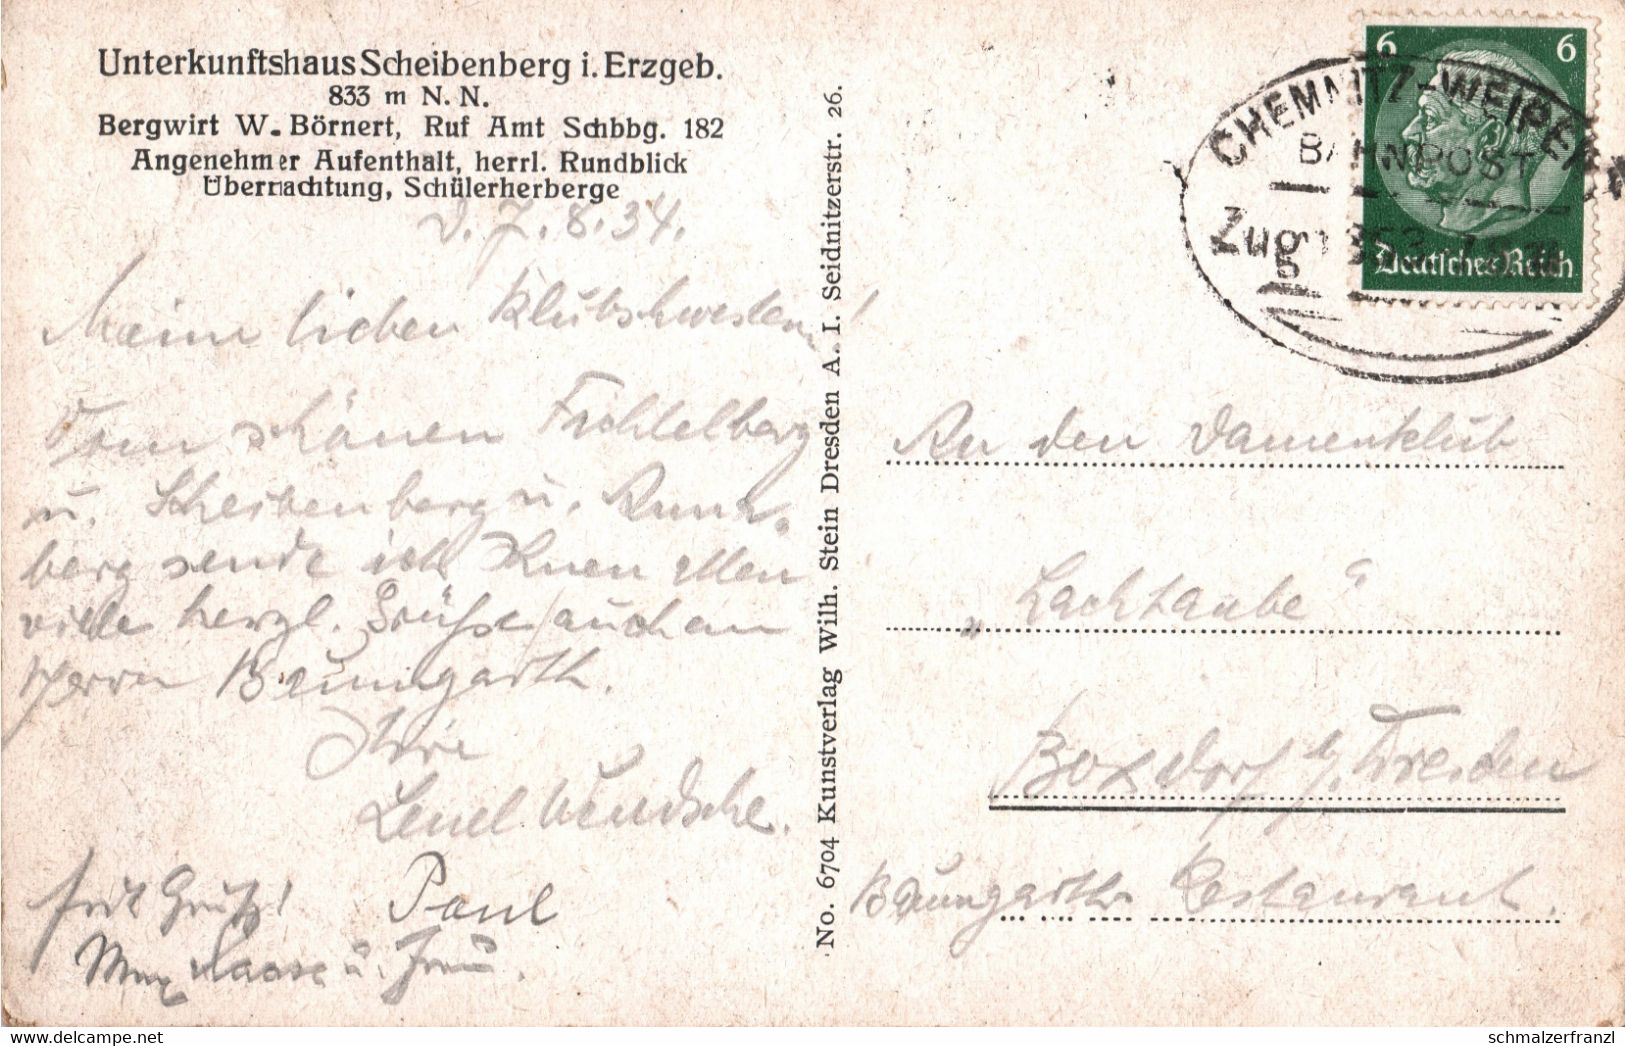 Unterkunftshaus Scheibenberg i. Erzgeb.
833 m N. N.
Bergwirt W. Börnert, Ruf Amt Schbbg. 182
Angenehmer Aufenthalt, herrl. Rundblick
Übernachtung, Schülerherberge
d. 7.8.34.
Meine lieben Klubschwestern!
Vom schönen Fichtelberg
u. Scheibenberg u.
berg sende ich Ihnen allen
viele herzl. Grüße auch an
Herrn Baumgarth.
Ihre
Paul
u. Frau.
No. 6704 Kunstverlag Wilh. Stein Dresden A. I. Seidnitzerstr. 26.
6 6
Deutsches Reich
CHEMNITZ-WEIPERT
BAHNPOST
Zug
An den Damenklub
„Lachtaube“
Boxdorf b/Dresden
Baumgarths Restaurant.
schmalzerfranzl